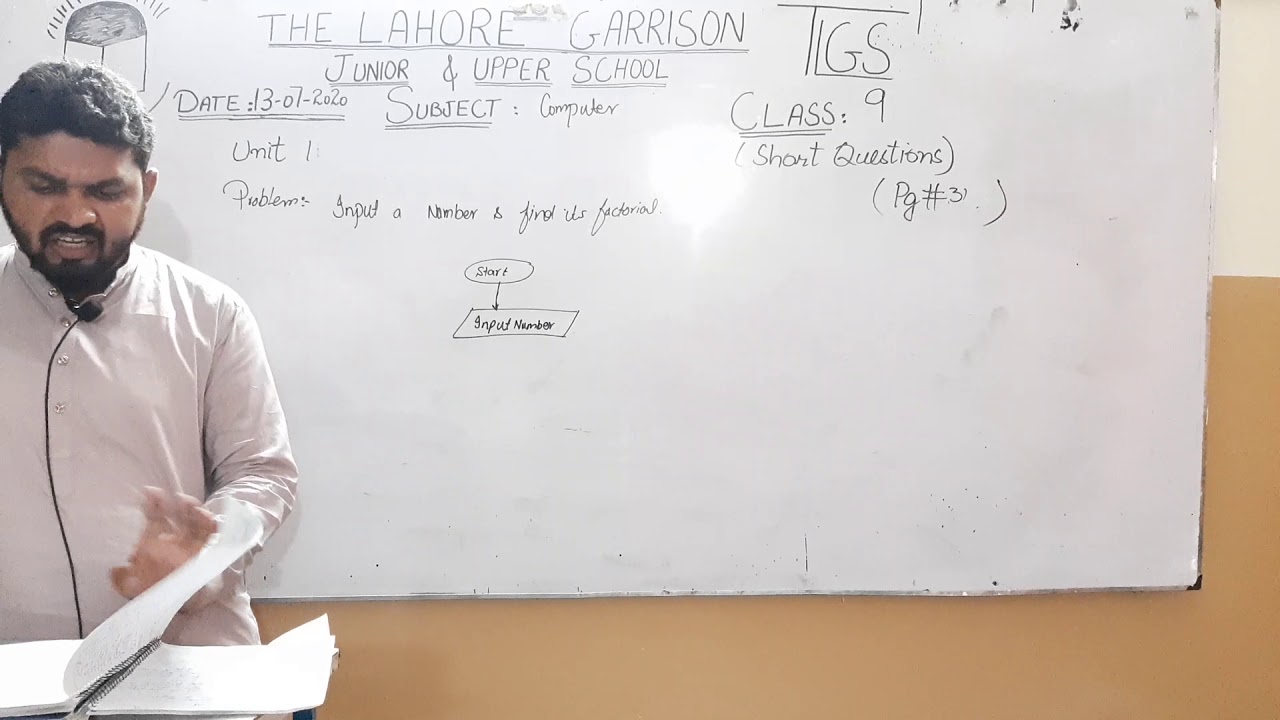 THE LAHORE GARRISON
TLGS
JUNIOR & UPPER SCHOOL
DATE :13-07-2020
SUBJECT : Computer
CLASS: 9
Unit 1:
(Short Questions)
Problem:- Input a Number & find its factorial.
(Pg#3 .)
Start
Input Number